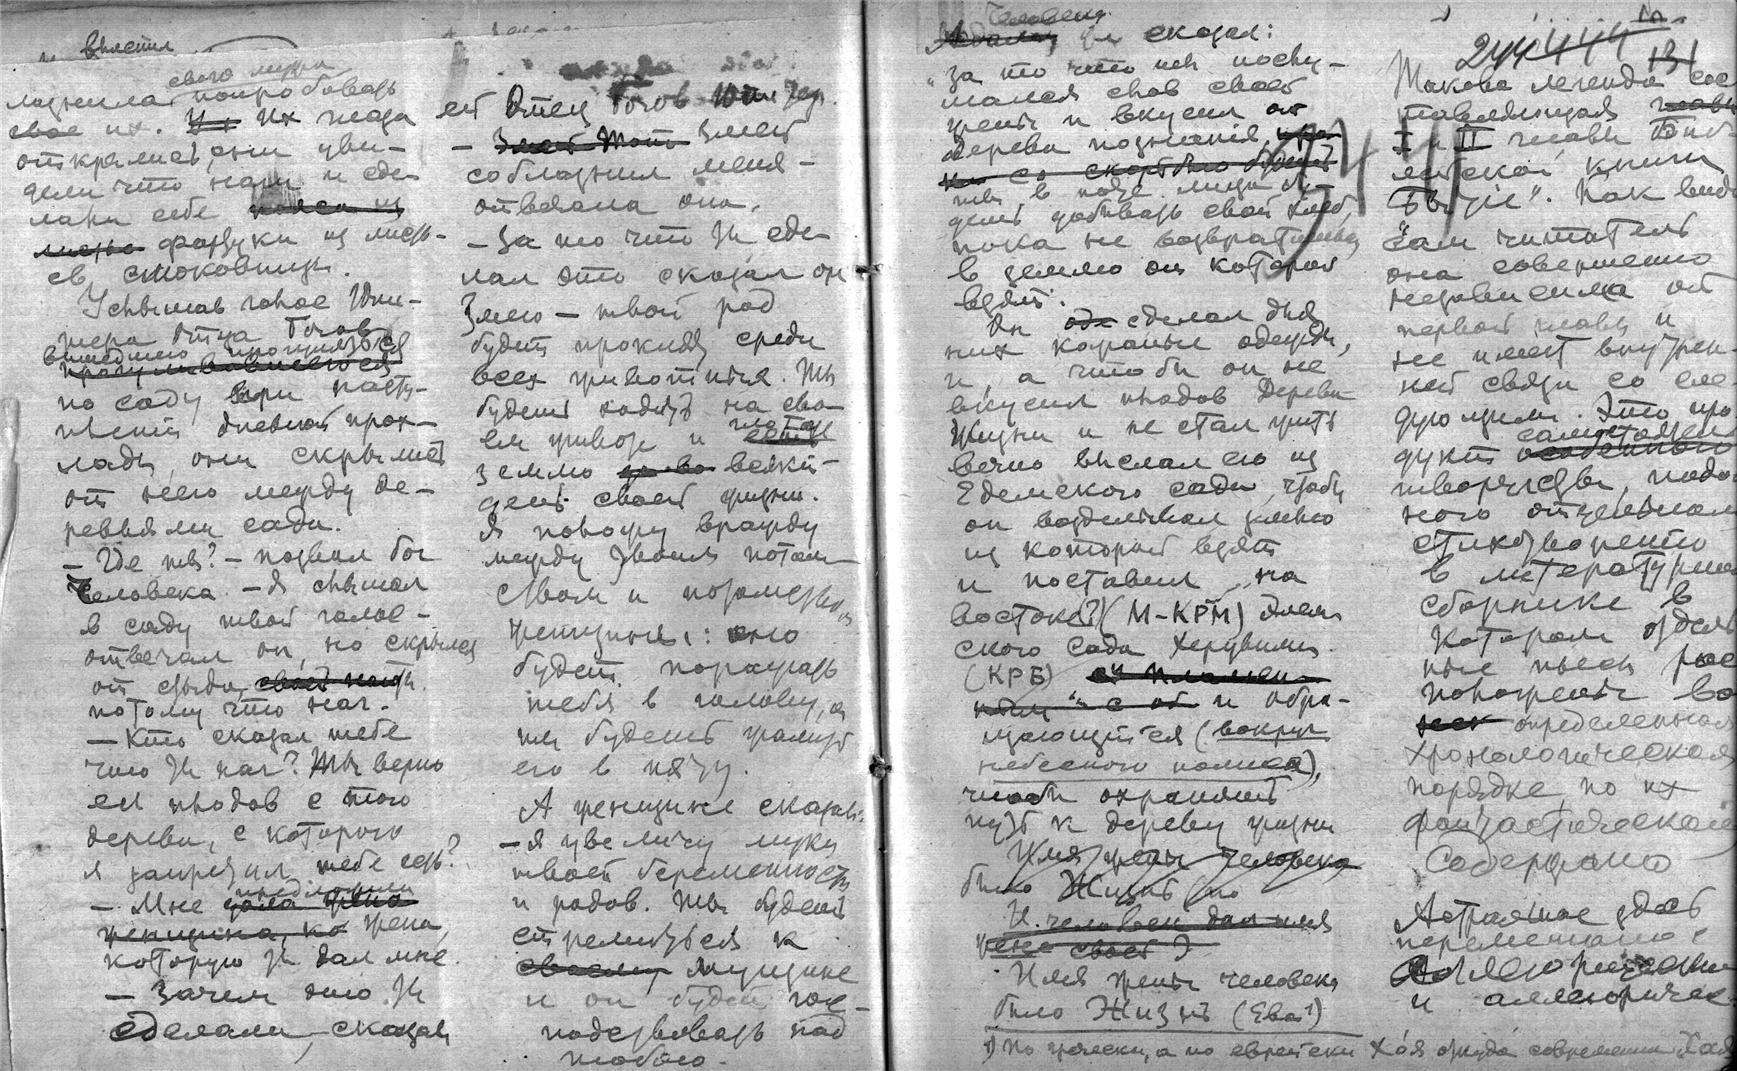 вместил
своего мужа
попробовать
свое их. Их глаза
открылись, они уви-
дели что наги и сде-
лали себе пояса из
листьо фартуки из листь-
ев смоковницы.
Услышав голос Юпи-
тера Отца Богов
вышедшего прогуляться
прогуливавшегося
по саду при насту-
плении дневной прох-
лады, они скрылись
от него между де-
ревьями сада.
— Где ты? — позвал бог
человека. — Я слышал
в саду твой голос —
отвечал он, но скрылся
от стыда, своей наготы
потому что наг.
— Кто сказал тебе
что ты наг? Ты верно
ел плодов с того
дерева, с которого
я запретил тебе есть?
предложила
— Мне дала жена
женщина, ко жена,
которую ты дал мне.
— Зачем это ты
сделала, — сказал
ей Отец Богов
— Змей Тот Змей
соблазнил меня —
отвечала она.
— За то что ты сде-
лал это сказал он
Змею — твой род
будет проклят среди
всех животных. Ты
будешь ходить на сво-
ем животе и есть
землю во всякий
день своей жизни.
Я положу вражду
между твоим потом-
ством и потомством
женщины: оно
будет поражать
тебя в голову, а
ты будешь жалить
его в пяту.
А женщине сказал:
— я увеличу муки
твоей беременности
и родов. Ты будешь
стремиться к
своему мужчине
и он будет гос-
подствовать над
тобою.
Человеку
Адаму он сказал:
"За то что ты послу-
шался слов своей
жены и вкусил от
дерева познания
со скорбью будешь
ты в поте лица бу-
дешь добывать свой хлеб,
пока не возвратишься
в землю из которой
взят".
Он сделал для
них кожаные одежды,
и, а чтобы он не
вкусил плодов Дерева
Жизни и не стал жить
вечно выслал его из
Едемского сада, чтобы
он возделывал землю
из которой взят
и поставил на
востоке(?) (М-КРМ) Эдем
ского Сада Херувима
(КРБ) с пламен-
ным и обра-
щающийся (вокруг
небесного полюса),
чтобы охранять
путь к дереву жизни
Имя жены человека
было Жизнь
И человек дал имя
жене своей
Имя жены человека
было Жизнь (Ева¹)
1) По гречески, а по еврейски Хо́я откуда современная Хая
244
131
Такова легенда сос-
тавляющая
I и II главы Биб-
лейской книги
"Бытие". Как видит
сам читатель
она совершенно
независима от
первой главы и
не имеет внутрен-
ней связи со сле-
дующими. Это про-
самостоятельн
дукт особенного
творчества, подоб-
ного отдельному
стихотворению
в литературном
сборнике в
котором отдель-
ные пьесы рас
положены во
всех определенном
хронологическом
порядке, по их
фантастическому
содержанию
Астральное здесь
перемешано с
и аллегоричес-